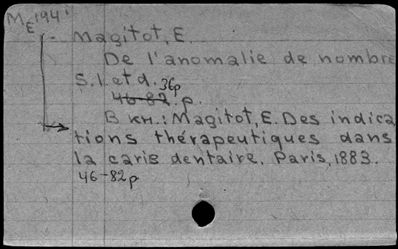 ME194
Magitot, E.
De l'anomalie de nombre
S.l. et d. 36p
46-82 p.
В кн.: Magitot, E. Des indica
tions thérapeutiques dans
la carie dentaire. Paris, 1883.
46-82p